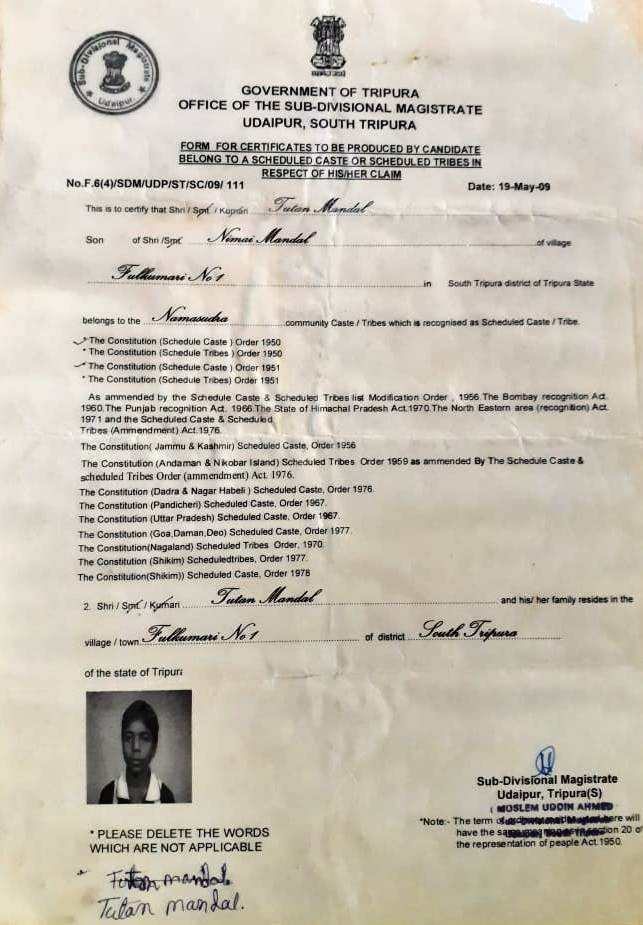 Sub-Divisional Magistrate
* Udaipur *
GOVERNMENT OF TRIPURA
OFFICE OF THE SUB-DIVISIONAL MAGISTRATE
UDAIPUR, SOUTH TRIPURA
FORM FOR CERTIFICATES TO BE PRODUCED BY CANDIDATE
BELONG TO A SCHEDULED CASTE OR SCHEDULED TRIBES IN
RESPECT OF HIS/HER CLAIM
No.F.6(4)/SDM/UDP/ST/SC/09/ 111 Date: 19-May-09
This is to certify that Shri / Smt. / Kumari Tutan Mandal
Son of Shri /Smt. Nimai Mandal of village
Fulkumari No 1 in South Tripura district of Tripura State
belongs to the Namasudra community Caste / Tribes which is recognised as Scheduled Caste / Tribe.
The Constitution (Schedule Caste ) Order 1950
* The Constitution (Schedule Tribes ) Order 1950
The Constitution (Schedule Caste ) Order 1951
* The Constitution (Schedule Tribes) Order 1951
As ammended by the Schedule Caste & Scheduled Tribes list Modification Order , 1956.The Bombay recognition Act.
1960.The Punjab recognition Act. 1966.The State of Himachal Pradesh Act.1970.The North Eastern area (recognition) Act.
1971 and the Scheduled Caste & Scheduled
Tribes (Ammendment) Act.1976.
The Constitution( Jammu & Kashmir) Scheduled Caste, Order 1956
The Constitution (Andaman & Nikobar Island) Scheduled Tribes Order 1959 as ammended By The Schedule Caste &
scheduled Tribes Order (ammendment) Act. 1976.
The Constitution (Dadra & Nagar Habeli ) Scheduled Caste, Order 1976.
The Constitution (Pandicheri) Scheduled Caste, Order 1967.
The Constitution (Uttar Pradesh) Scheduled Caste, Order 1967.
The Constitution (Goa,Daman,Deo) Scheduled Caste, Order 1977.
The Constitution(Nagaland) Scheduled Tribes Order, 1970.
The Constitution (Shikim) Scheduledtribes, Order 1977.
The Constitution(Shikim)) Scheduled Caste, Order 1978
2. Shri / Smt. / Kumari Tutan Mandal and his/ her family resides in the
village / town Fulkumari No 1 of district South Tripura
of the state of Tripura
Sub-Divisional Magistrate
Udaipur, Tripura(S)
( MOSLEM UDDIN AHMED
*Note:- The term here will
have the section 20 of
the representation of peaple Act.1950.
* PLEASE DELETE THE WORDS
WHICH ARE NOT APPLICABLE
mandal
Tutan mandal.